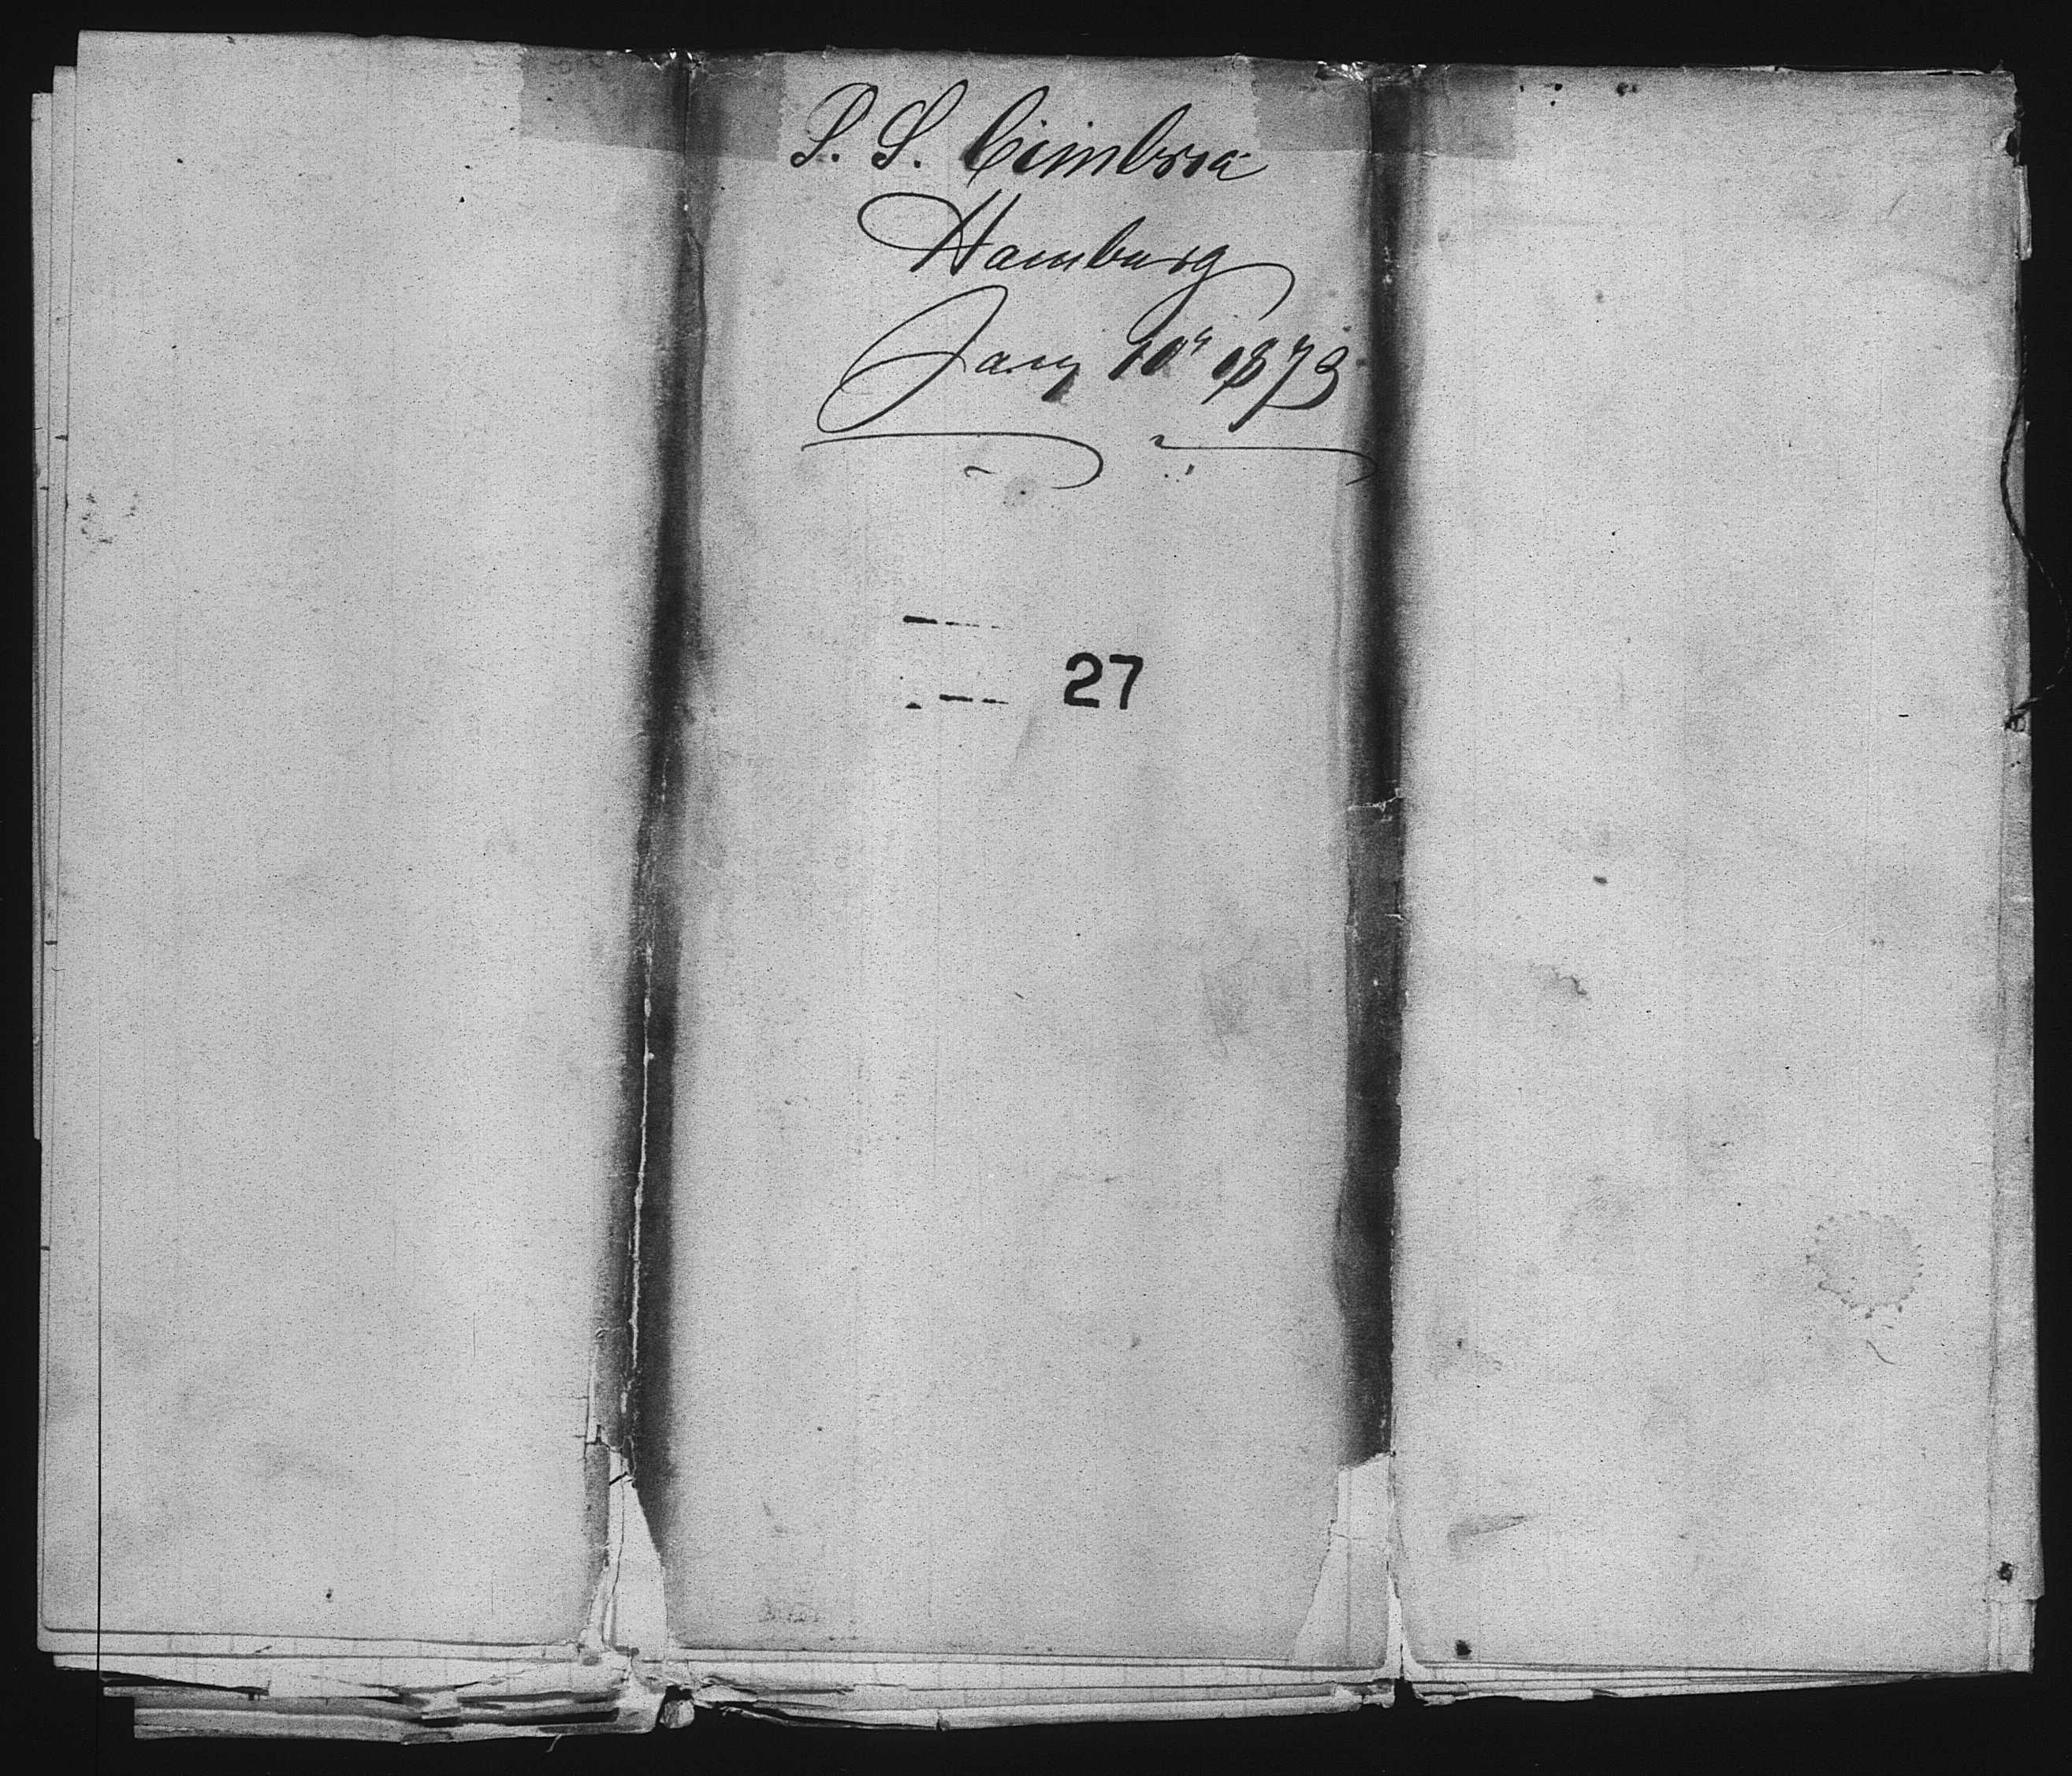 S. S. Cimbria
Hamburg
Jany 10" 1873
27